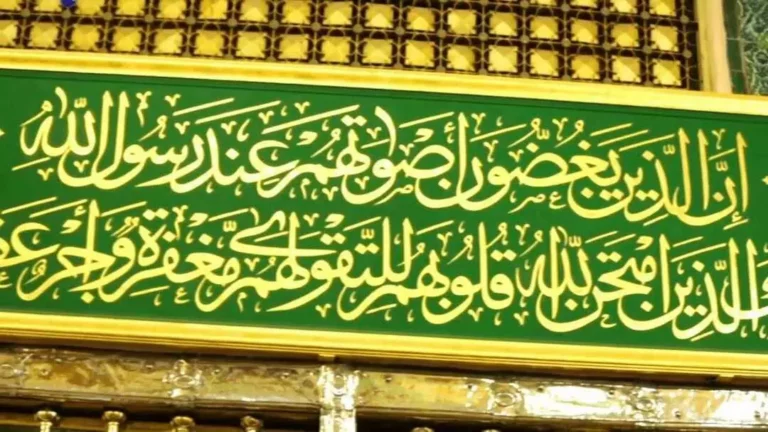 إِنَّ الَّذِينَ يَغُضُّونَ أَصْوَاتَهُمْ عِندَ رَسُولِ اللَّهِ
الَّذِينَ امْتَحَنَ اللَّهُ قُلُوبَهُمْ لِلتَّقْوَى لَهُم مَّغْفِرَةٌ وَأَجْرٌ